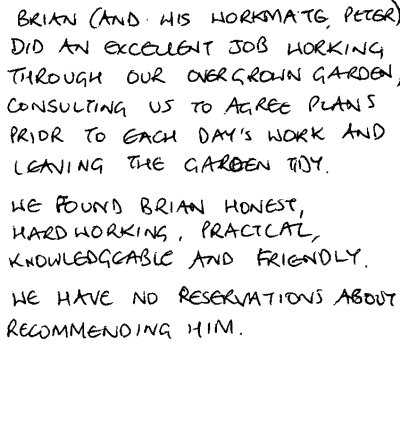 BRIAN (AND HIS WORKMATE, PETER)
DID AN EXCELLENT JOB WORKING
THROUGH OUR OVERGROWN GARDEN,
CONSULTING US TO AGREE PLANS
PRIOR TO EACH DAY'S WORK AND
LEAVING THE GARDEN TIDY.
WE FOUND BRIAN HONEST,
HARD WORKING, PRACTICAL,
KNOWLEDGEABLE AND FRIENDLY.
WE HAVE NO RESERVATIONS ABOUT
RECOMMENDING HIM.